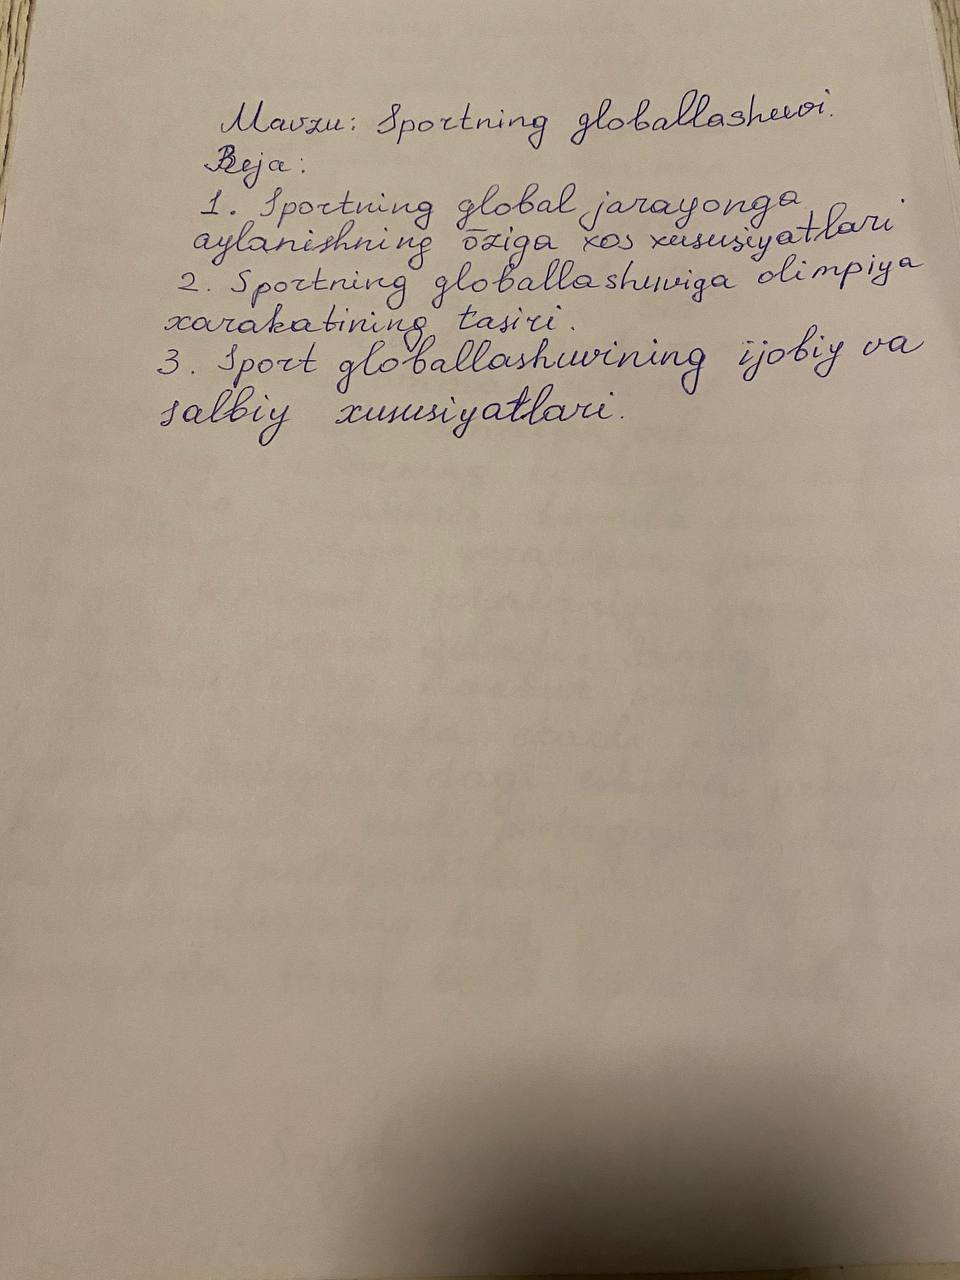 Mavzu: Sportning globallashuvi.
Reja:
1. Sportning global jarayonga
aylanishning ōziga xos xususiyatlari
2. Sportning globallashuviga olimpiya
xarakatining tasiri.
3. Sport globallashuvining ijobiy va
salbiy xususiyatlari.